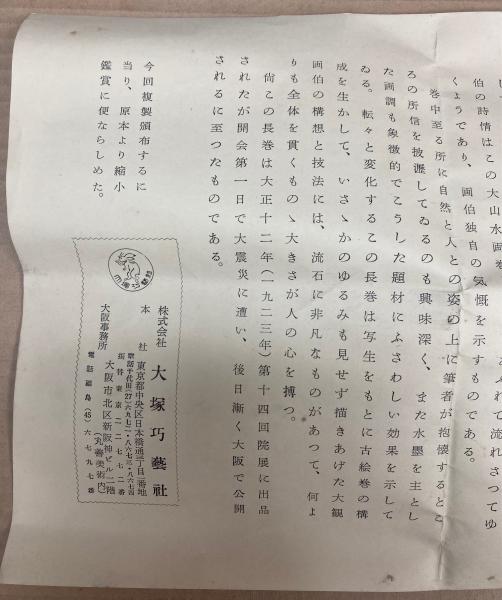 あれて流れさつてゆ
伯の詩情はこの大山水画巻
くようであり、画伯独自の気慨を示すものである。
巻中至る所に自然と人との姿の上に筆者が抱懐するとこ
ろの所信を披瀝してゐるのも興味深く、また水墨を主とし
た画調も象徴的でこうした題材にふさわしい効果を示して
ゐる。転々と変化するこの長巻は写生をもとに古絵巻の構
成を生かして、いさゝかのゆるみも見せず描きあげた大観
画伯の構想と技法には、流石に非凡なものがあつて、何よ
りも全体を貫くものゝ大きさが人の心を搏つ。
尚この長巻は大正十二年(一九二三年)第十四回院展に出品
されたが開会第一日で大震災に遭い、後日漸く大阪で公開
されるに至つたものである。
今回複製頒布するに
当り、原本より縮小
鑑賞に便ならしめた。
株式会社 大塚巧藝社
本社 東京都中央区日本橋通丁目三番地
電話千代田(27)六九七二・八六七三・八六七四
振替東京二二七七二番
大阪事務所 大阪市北区新阪神ビル二階
(丸善美術内)
電話福島(45)六七九七番